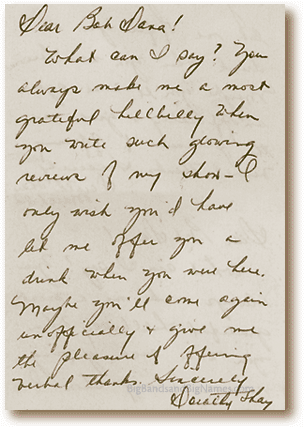 Dear Bob Dana!
What can I say? You
always make me a most
grateful hillbilly when
you write such glowing
reviews of my show - I
only wish you'd have
let me offer you a
drink when you were here.
Maybe you'll come again
unofficially & give me
the pleasure of offering
verbal thanks. Sincerely
BigBandsandBigNames.com
Dorothy Shay